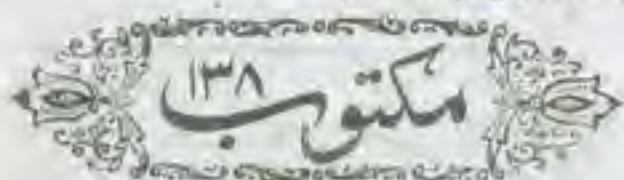 مکتوب ۱۳۸